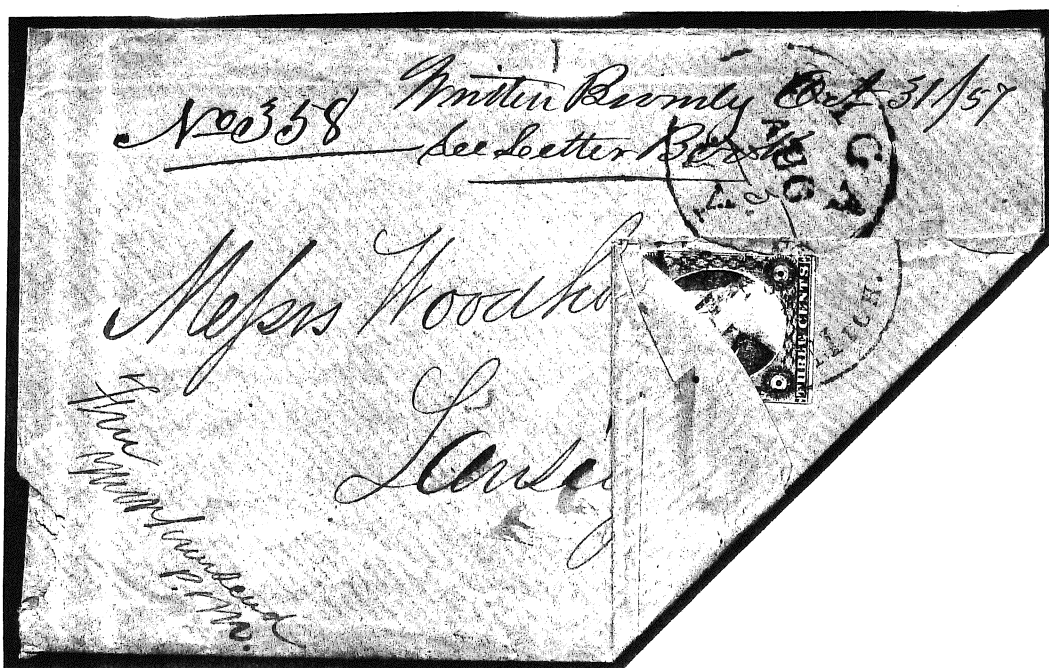 No 358 Written Bromly Oct 31/57
See Letter Book
AUG
Messrs Woodho
Lansi
THREE CENTS
MICH.
P.M.